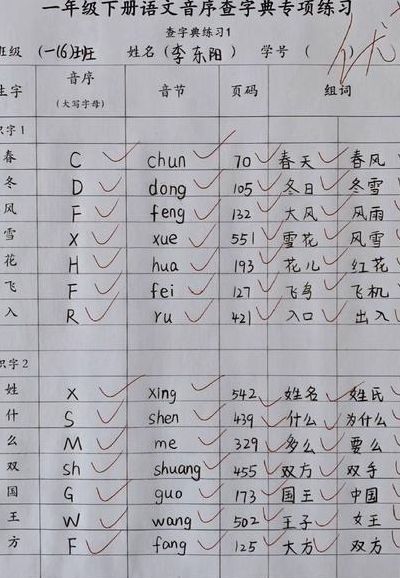 一年级下册语文音序查字典专项练习
查字典练习1
班级 (一(6)班 姓名 (李东阳) 学号 ( )
生字 音序 (大写字母) 音节 页码 组词
识字1
春 C chun 70 春天 春风
冬 D dong 105 冬日 冬雪
风 F feng 132 大风 风雨
雪 X xue 551 雪花 风雪
花 H hua 193 花儿 红花
飞 F fei 127 飞鸟 飞机
入 R ru 421 入口 出入
识字2
姓 X xing 542 姓名 姓氏
什 S shen 439 什么 为什么
么 M me 329 多么 要么
双 sh shuang 455 双方 双手
国 G guo 173 国王 中国
王 W wang 502 王子 女王
方 F fang 125 大方 双方